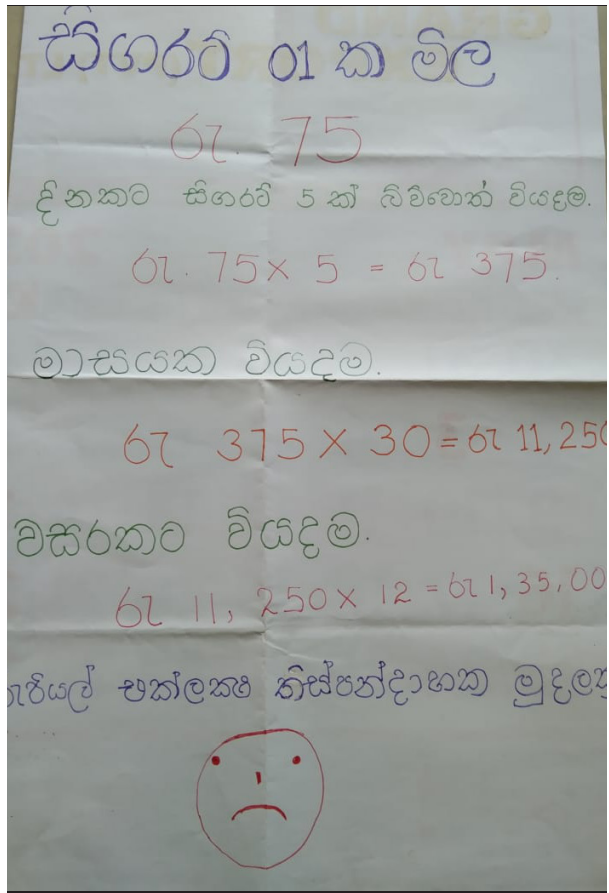 සිගරට් 01 ක මිල
රු. 75
දිනකට සිගරට් 5 ක් බිව්වොත් වියදම.
රු. 75 × 5 = රු 375.
මාසයක වියදම.
රු 375 × 30 = රු 11,250
වසරකට වියදම.
රු 11, 250 × 12 = රු 1,35,00
රුපියල් එක්ලක්ෂ තිස්පන්දාහක මුදලක්